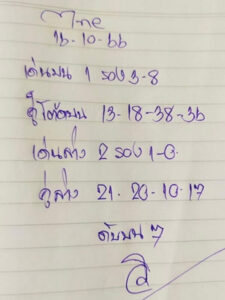 16-10-66
เด่นบน 1 รอง 3-8
คู่โต๊ดบน 13-18-38-36
เด่นล่าง 2 รอง 1-0
คู่ล่าง 21-20-10-17
ดับบน 7